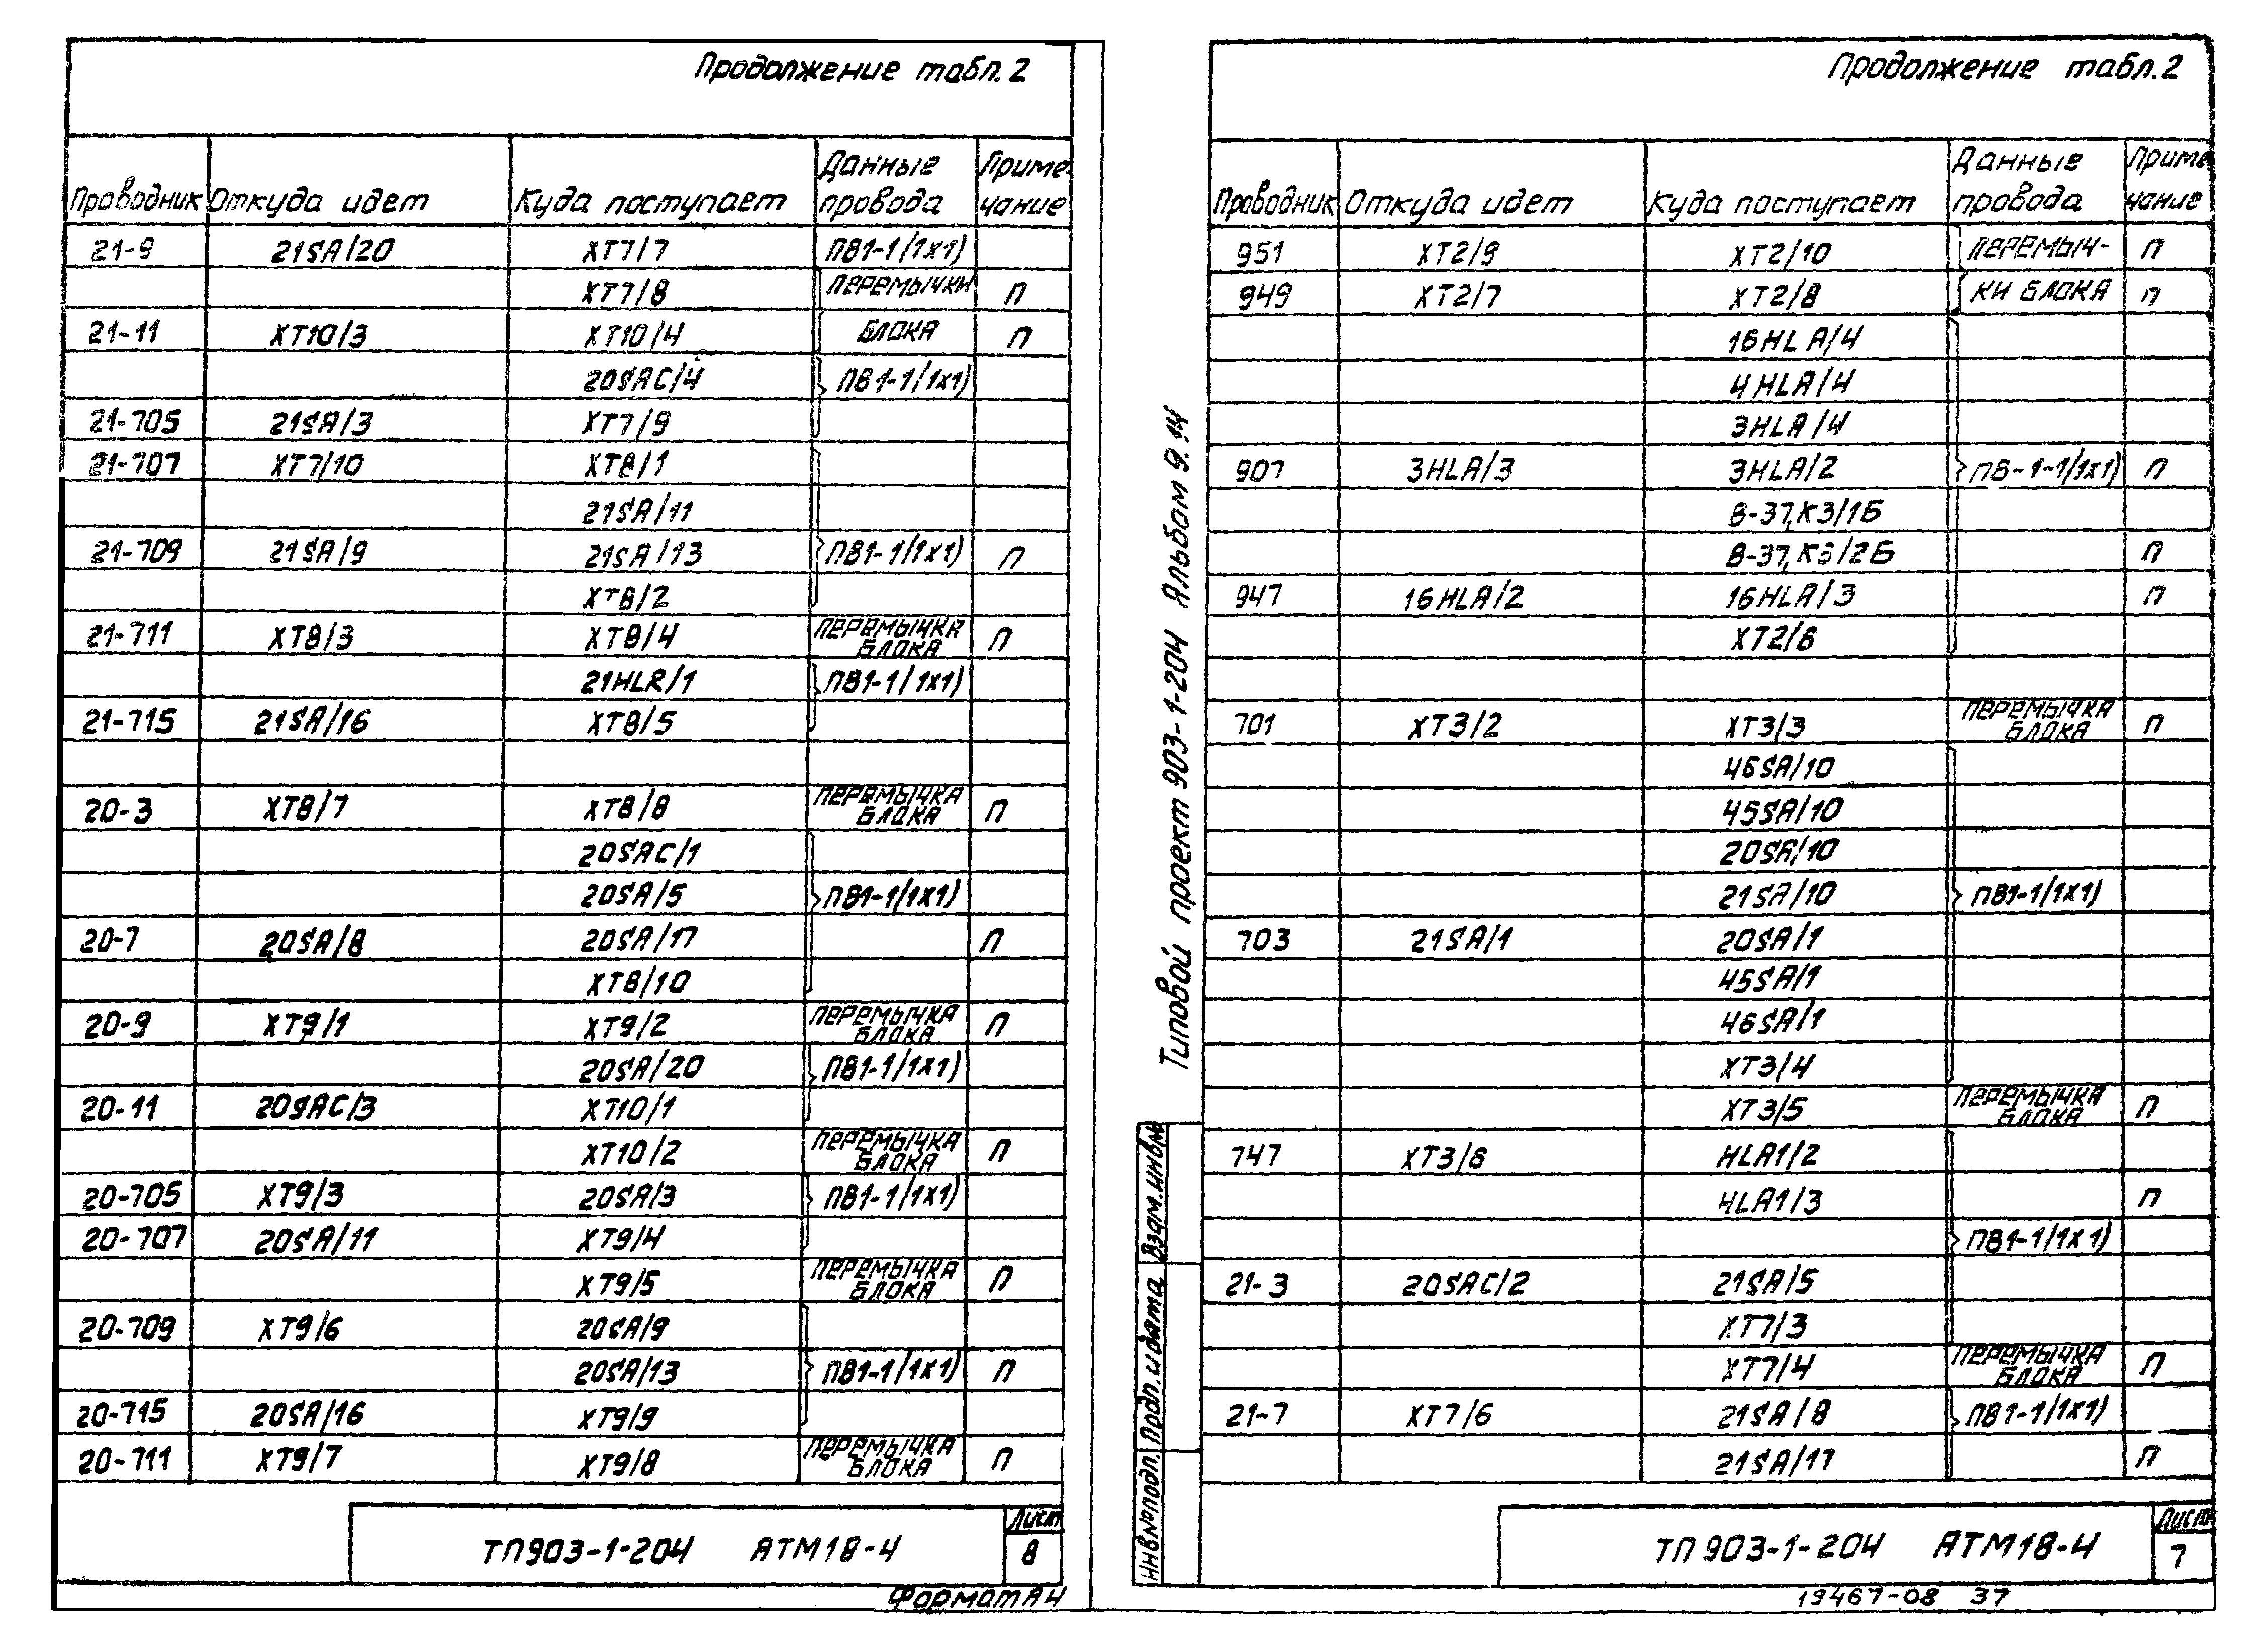 Продолжение табл. 2
Проводник Откуда идет Куда поступает Данные провода Примечание
21-9 21SA/20 XT7/7 ПВ1-1/1х1)
XT7/8 ПЕРЕМЫЧКИ П
21-11 XT10/3 XT10/4 БЛОКА П
20SAC/4 ПВ1-1/1х1)
21-705 21SA/3 XT7/9
21-707 XT7/10 XT8/1
21SA/11
21-709 21SA/9 21SA/13 ПВ1-1/1х1) П
XT8/2
21-711 XT8/3 XT8/4 ПЕРЕМЫЧКА БЛОКА П
21HLR/1 ПВ1-1/1х1)
21-715 21SA/16 XT8/5
20-3 XT8/7 XT8/8 ПЕРЕМЫЧКА БЛОКА П
20SAC/1
20SA/5 ПВ1-1/1х1)
20-7 20SA/8 20SA/17 П
XT8/10
20-9 XT9/1 XT9/2 ПЕРЕМЫЧКА БЛОКА П
20SA/20 ПВ1-1/1х1)
20-11 20SAC/3 XT10/1
XT10/2 ПЕРЕМЫЧКА БЛОКА П
20-705 XT9/3 20SA/3 ПВ1-1/1х1)
20-707 20SA/11 XT9/4
XT9/5 ПЕРЕМЫЧКА БЛОКА П
20-709 XT9/6 20SA/9
20SA/13 ПВ1-1/1х1) П
20-715 20SA/16 XT9/9
20-711 XT9/7 XT9/8 ПЕРЕМЫЧКА БЛОКА П
ТП903-1-204 АТМ18-4 Лист 8
Формат А4
Типовой проект 903-1-204 Альбом 9.14
Продолжение табл. 2
Проводник Откуда идет Куда поступает Данные провода Примечание
951 XT2/9 XT2/10 ПЕРЕМЫЧ- П
949 XT2/7 XT2/8 КИ БЛОКА П
16HLA/4
4HLA/4
3HLA/4
907 3HLA/3 3HLA/2 ПВ-1-1/1х1) П
В-37,К3/1Б
В-37,К3/2Б П
947 16HLA/2 16HLA/3 П
XT2/6
701 XT3/2 XT3/3 ПЕРЕМЫЧКА БЛОКА П
46SA/10
45SA/10
20SA/10
21SA/10 ПВ1-1/1х1)
703 21SA/1 20SA/1
45SA/1
46SA/1
XT3/4
XT3/5 ПЕРЕМЫЧКА БЛОКА П
747 XT3/6 HLA1/2
4LA1/3 П
ПВ1-1/1х1)
21-3 20SAC/2 21SA/5
XT7/3
XT7/4 ПЕРЕМЫЧКА БЛОКА П
21-7 XT7/6 21SA/8 ПВ1-1/1х1)
21SA/17 П
Инв.№подл. Подп. и дата Взам.инв№
ТП903-1-204 АТМ18-4 Лист 7
19467-08 37